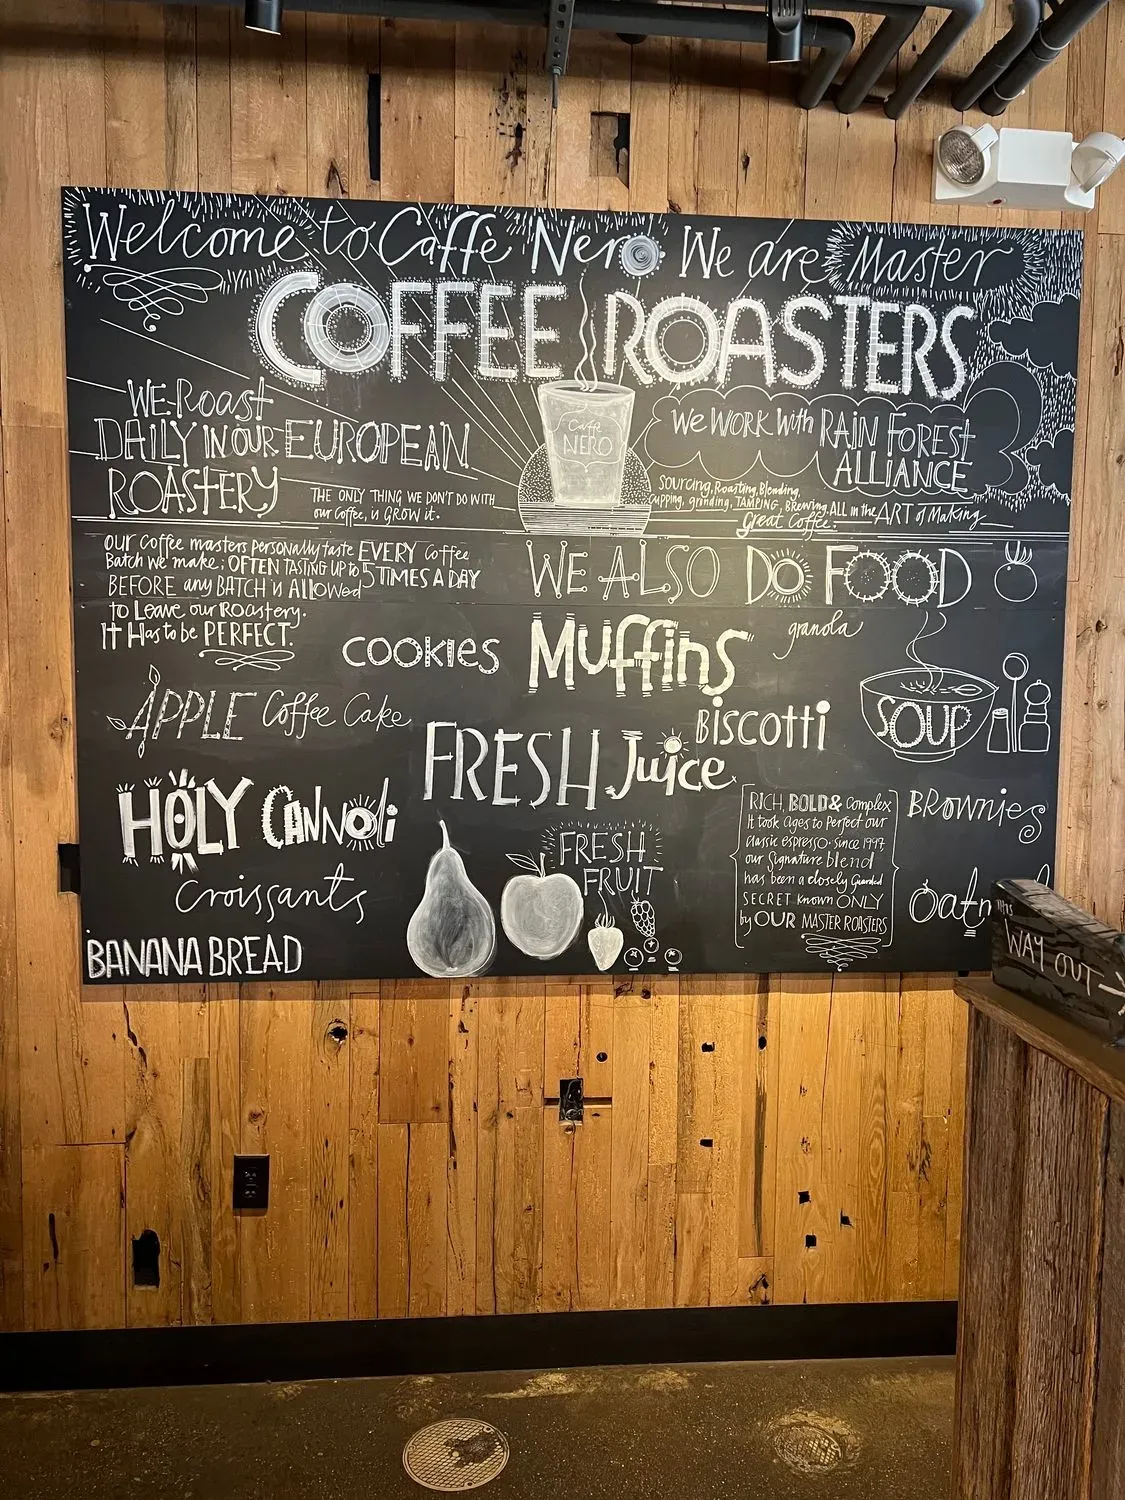 Welcome to Caffè Nero We are Master
COFFEE ROASTERS
WE Roast
DAILY IN OUR EUROPEAN
ROASTERY
THE ONLY THING WE DON'T DO WITH
our Coffee, is GROW it.
Caffè
NERO
We WORK With RAIN FOREST
ALLIANCE
Sourcing, Roasting, Blending,
Cupping, grinding, TAMPING, Brewing. ALL in the ART of MAKING
Great Coffee.
our coffee masters personally taste EVERY Coffee
Batch we make; OFTEN TASTING UP to 5 TIMES A DAY
BEFORE any BATCH is Allowed
to Leave our Roastery.
IT Has to be PERFECT.
WE ALSO DO FOOD
COOKIES
Muffins
granola
APPLE Coffee Cake
BISCOTTI
SOUP
FRESH Juice
HOLY CANNOli
Croissants
BANANA BREAD
FRESH
FRUIT
RICH, BOLD & Complex
It took Ages to Perfect our
Classic espresso. since 1997
our Signature blend
has been a closely Guarded
SECRET known ONLY
by OUR MASTER ROASTERS
BRownies
Oat
WAY OUT →